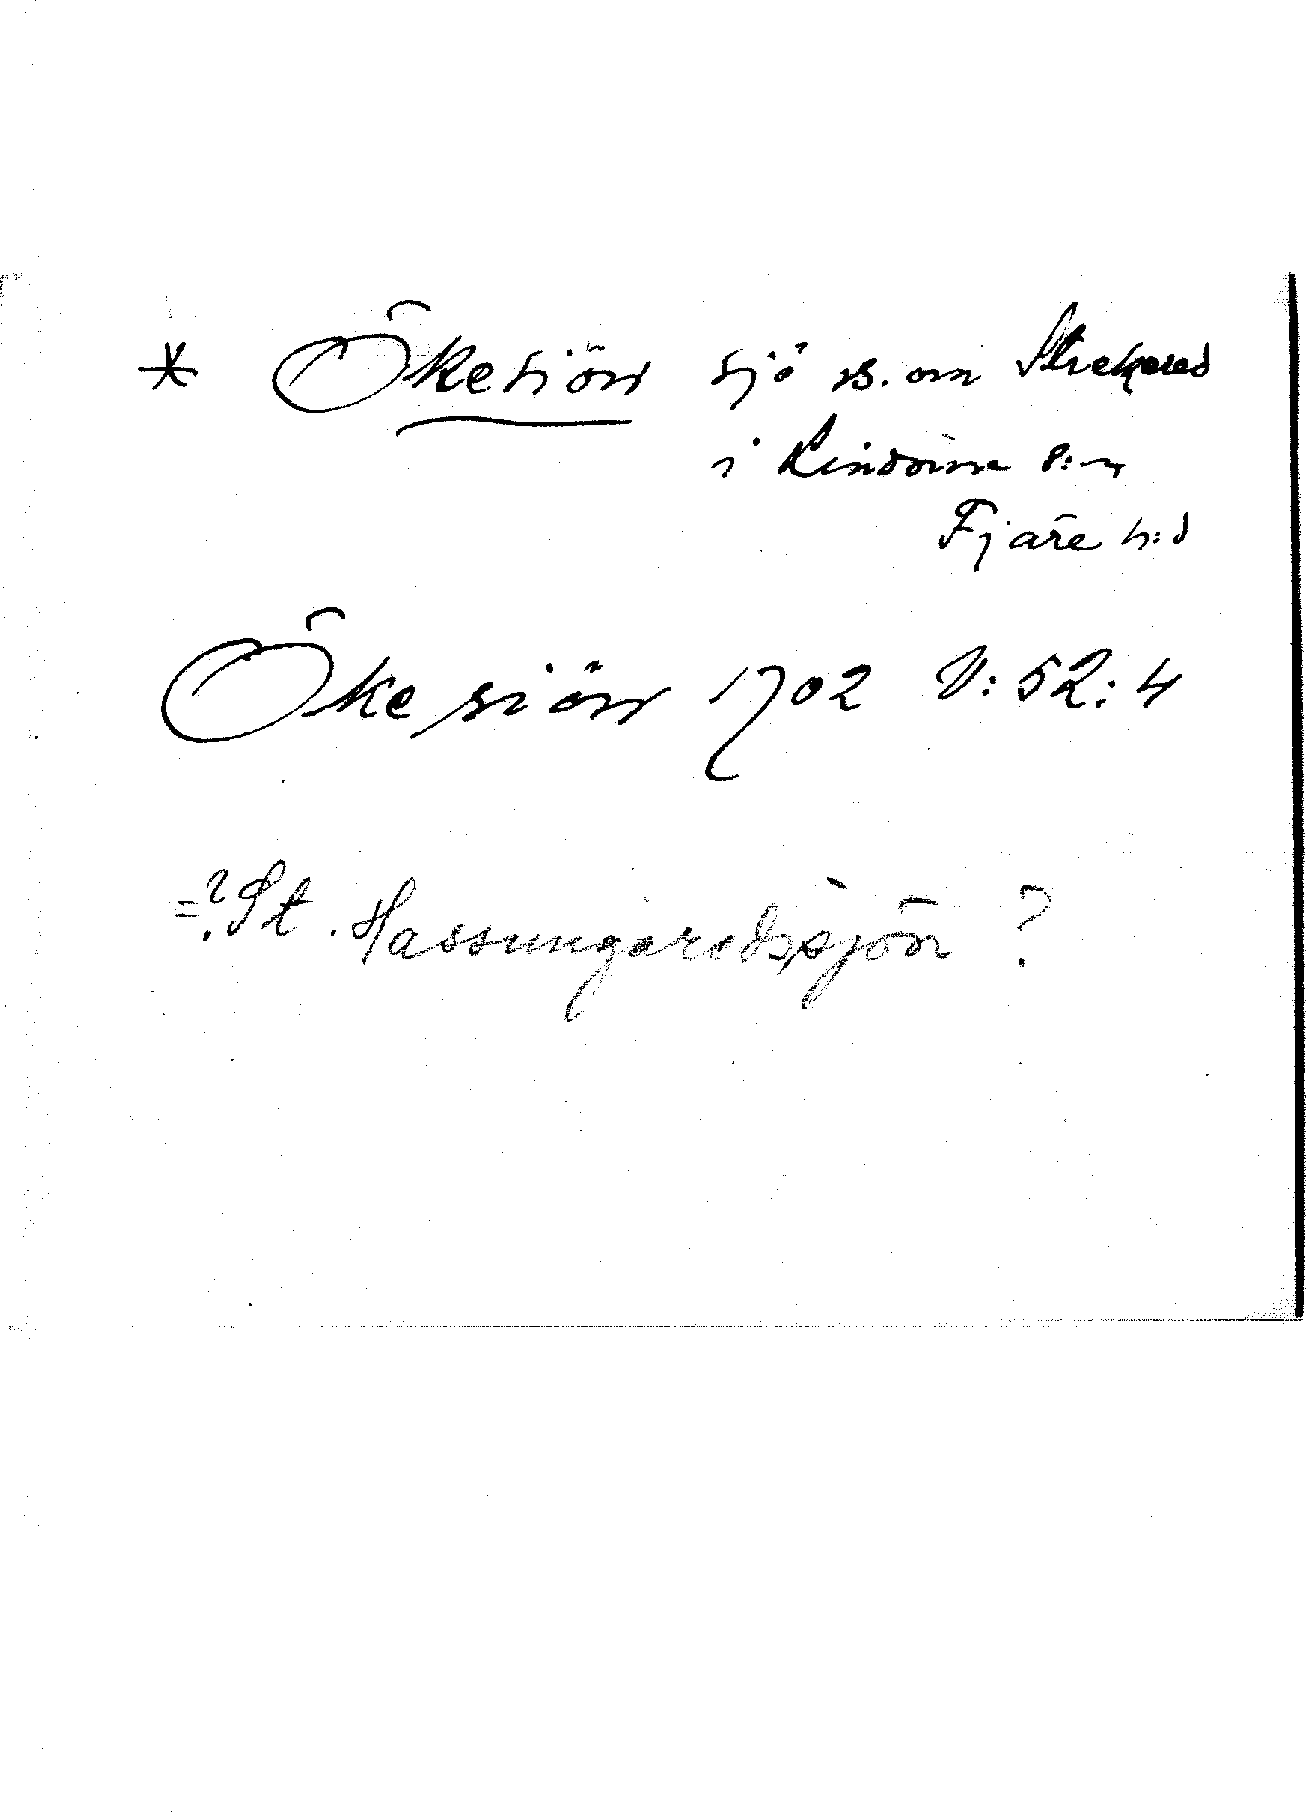 * Ökesiön sjö s. om Strekered
i Lindome s:n
Fjäre h:d
Öke siön 1702 V:52:4
=? St. Hassungaredssjön ?